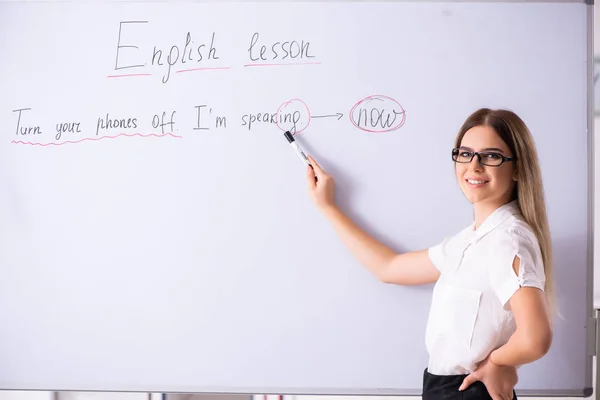 English lesson
Turn your phones off. I'm speaking → now